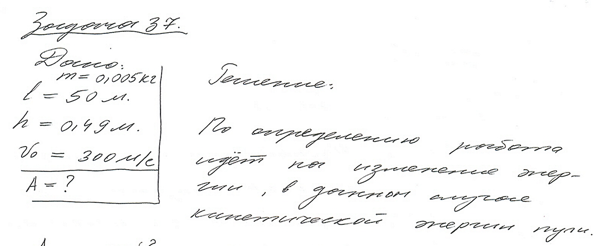 Задача 37.
Дано:
m = 0,005 кг
l = 50 м.
h = 0,49 м.
v₀ = 300 м/с
A = ?
Решение:
По определению работа
идёт на изменение энер-
гии, в данном случае
кинетической энергии пули.